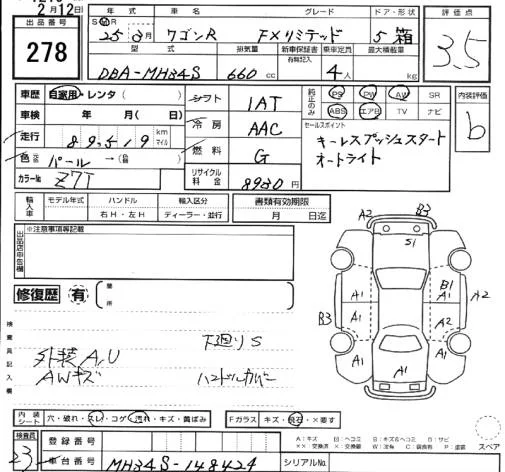 2月12日
出品番号
278
年式 車名 グレード ドア・形状
25年 月 ワゴンR FXリミテッド 5 箱
評価点
3.5
型式 排気量 新車保証書 有無記入 乗車定員 最大積載量
DBA-MH34S 660 cc 4人 kg
車歴 自家用・レンタ( )
シフト 1AT
純正のみ PS PW AW SR
ABS エアB TV ナビ
内装評価
b
車検 年 月( 日)
冷房 AAC
セールスポイント
キーレスプッシュスタート
オートライト
走行 89,519 km マイル
燃料 G
色 パール →( )
カラーNo Z7T
リサイクル料金 8930円
輸入車 モデル年式 ハンドル 輸入区分
右H・左H ディーラー・並行
書類有効期限
月 日迄
※注意事項等記載
修復歴 有 箇所
検査員記入欄
外装A,U
AWキズ
下廻りS
ハンドルカバー
A2 B3
S1
A1 B1 A1 A2
B3 A1 A2 A1
A1
内装シート 穴・破れ・スレ・コゲ・汚れ・キズ・黄ばみ
Fガラス キズ・飛石・×要す
検査員
23
登録番号
車台番号 MH34S-148424
シリアルNo.
A：キズ U：ヘコミ B：キズ&ヘコミ S：サビ
××：交換済 ×：交換要 W：波有 C：腐食有 P：塗装
スペア